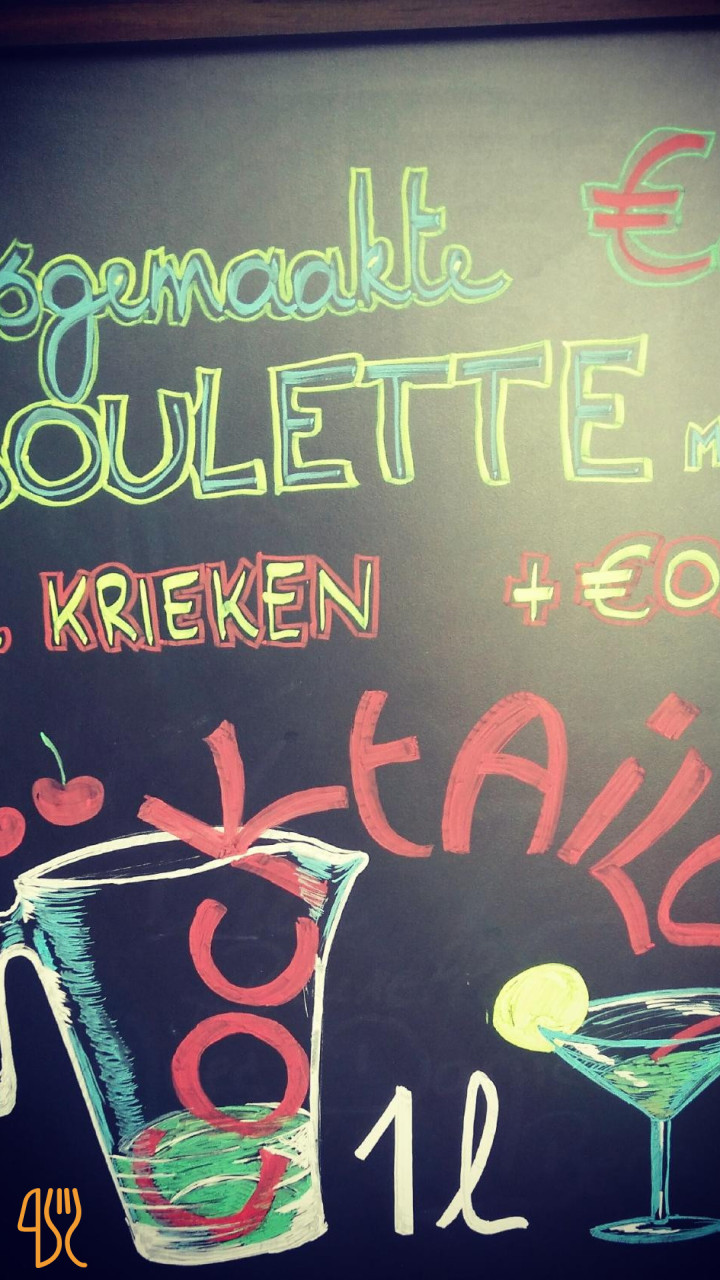 sgemaakte €
BOULETTE M
KRIEKEN + €0
COCKTAILS
1l